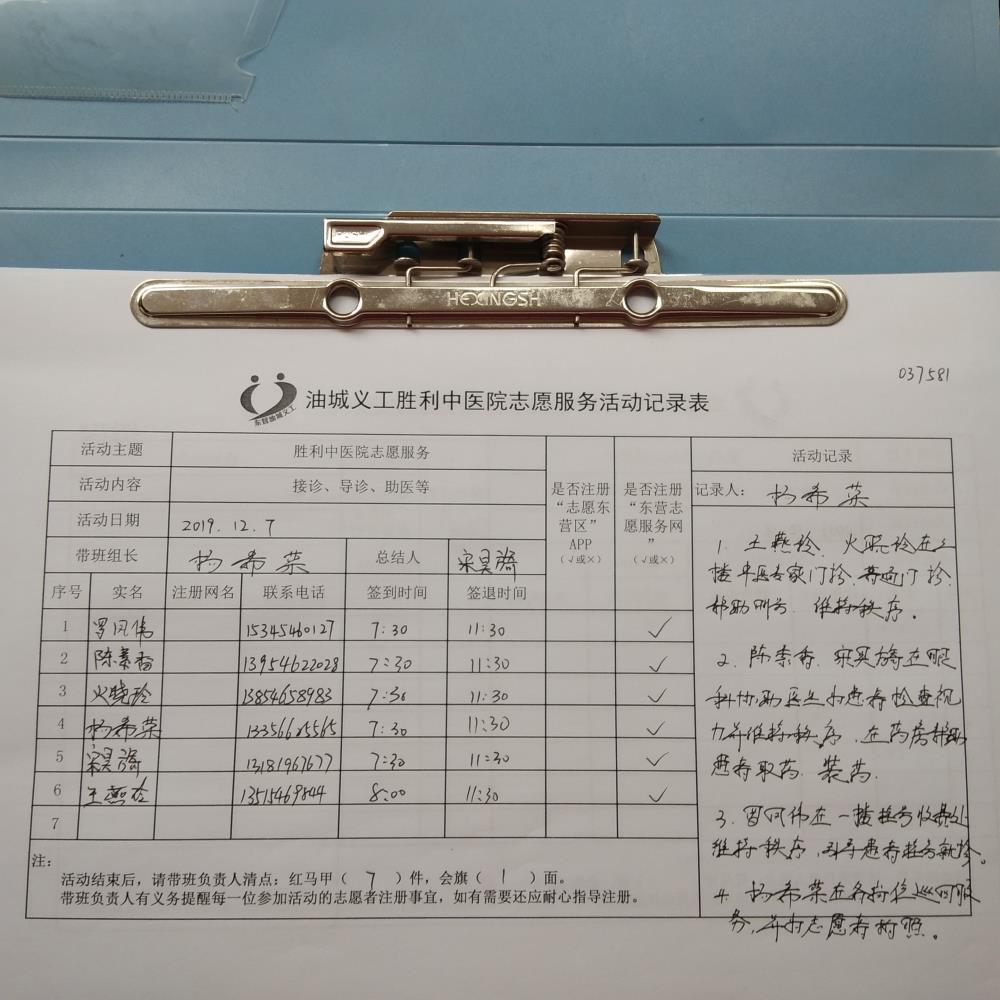 PUSH
HEXINGSH
037581
东营油城义工
油城义工胜利中医院志愿服务活动记录表
活动主题 胜利中医院志愿服务
活动内容 接诊、导诊、助医等
活动日期 2019.12.7
带班组长 杨希荣 总结人
是否注册“志愿东营区”APP（√或×）
是否注册“东营志愿服务网”（√或×）
序号 实名 注册网名 联系电话 签到时间 签退时间
1 罗凤伟 15345460127 7:30 11:30 ✓
2 陈素香 13954622028 7:30 11:30 ✓
3 火晓玲 13854658983 7:30 11:30 ✓
4 杨希荣 7:30 11:30 ✓
5 13181967677 7:30 11:30 ✓
6 王燕玲 8:00 11:30 ✓
7
注：
活动结束后，请带班负责人清点：红马甲（7）件，会旗（1）面。
带班负责人有义务提醒每一位参加活动的志愿者注册事宜，如有需要还应耐心指导注册。
活动记录
记录人：杨希荣
1. 王燕玲、火晓玲在三
楼中医专家门诊、普通门诊
帮助叫号、维持秩序。
2、陈素香、在眼
科协助医生为患者检查视
力并维持秩序、在药房帮助
患者取药、装药。
3、罗凤伟在一楼挂号收费处
维持秩序，引导患者挂号就诊。
4、杨希荣在各岗位巡回服
务，并为志愿者拍照。